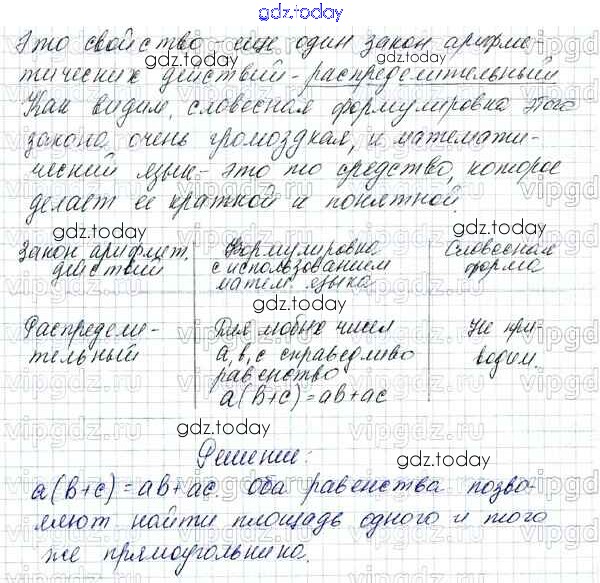 gdz.today
Это свойство - еще один закон арифме-
тических действий - распределительный
gdz.today
Как видим, словесная формулировка этого
закона очень громоздкая, и математи-
ческий язык - это то средство, которое
делает ее краткой и понятной.
gdz.today
Закон арифмет. действий
Формулировка с использованием матем. языка
Словесная форма
gdz.today
Распредели-
тельный
Для любых чисел
a, b, c справедливо
равенство
a(b+c)=ab+ac
Не при-
водим.
gdz.today
gdz.today
Решение:
gdz.today
a(b+c)=ab+ac. Оба равенства позво-
ляют найти площадь одного и того
же прямоугольника.
gdz.today